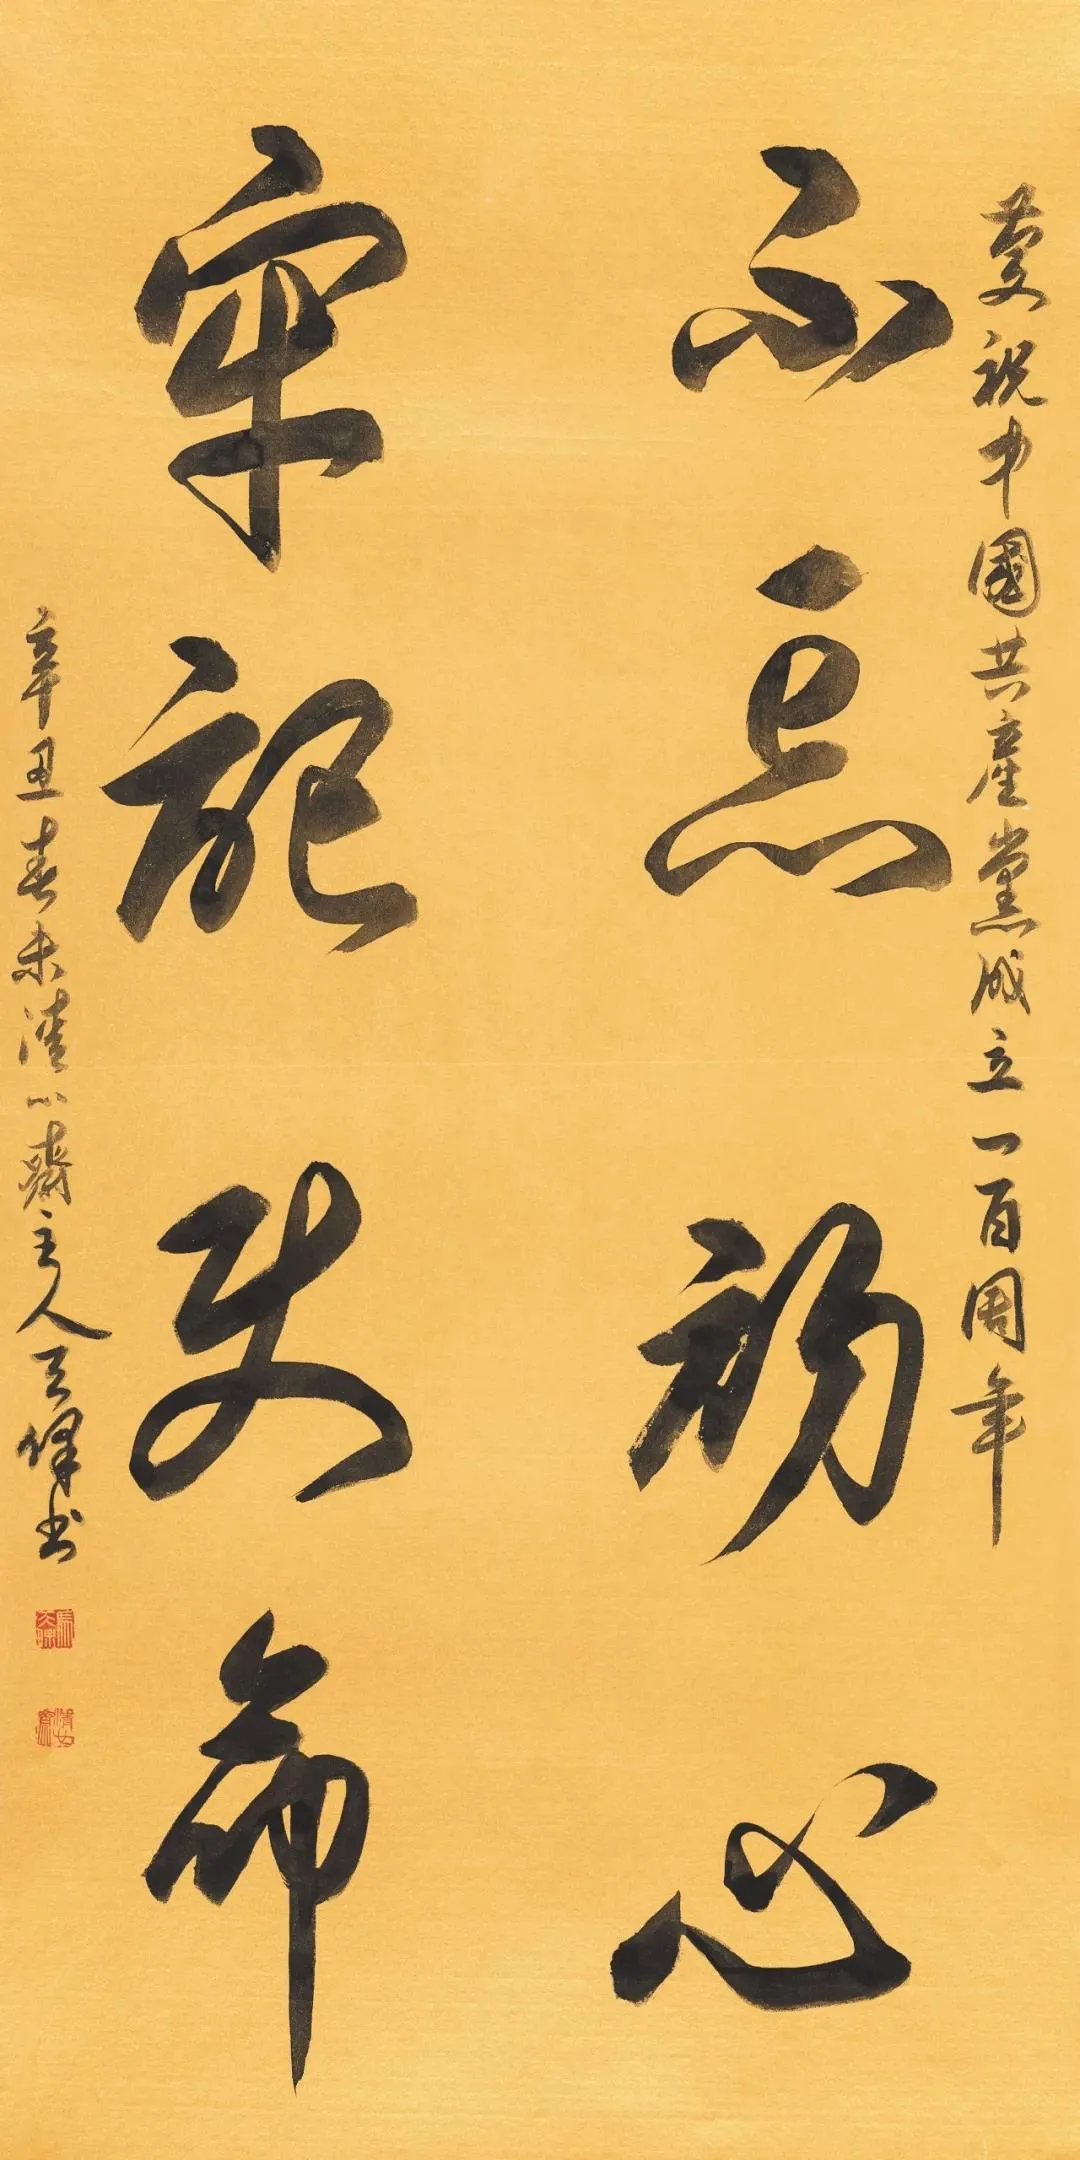 慶祝中國共産黨成立一百周年
不忘初心
牢記使命
辛丑春末清心齋主人天澤书